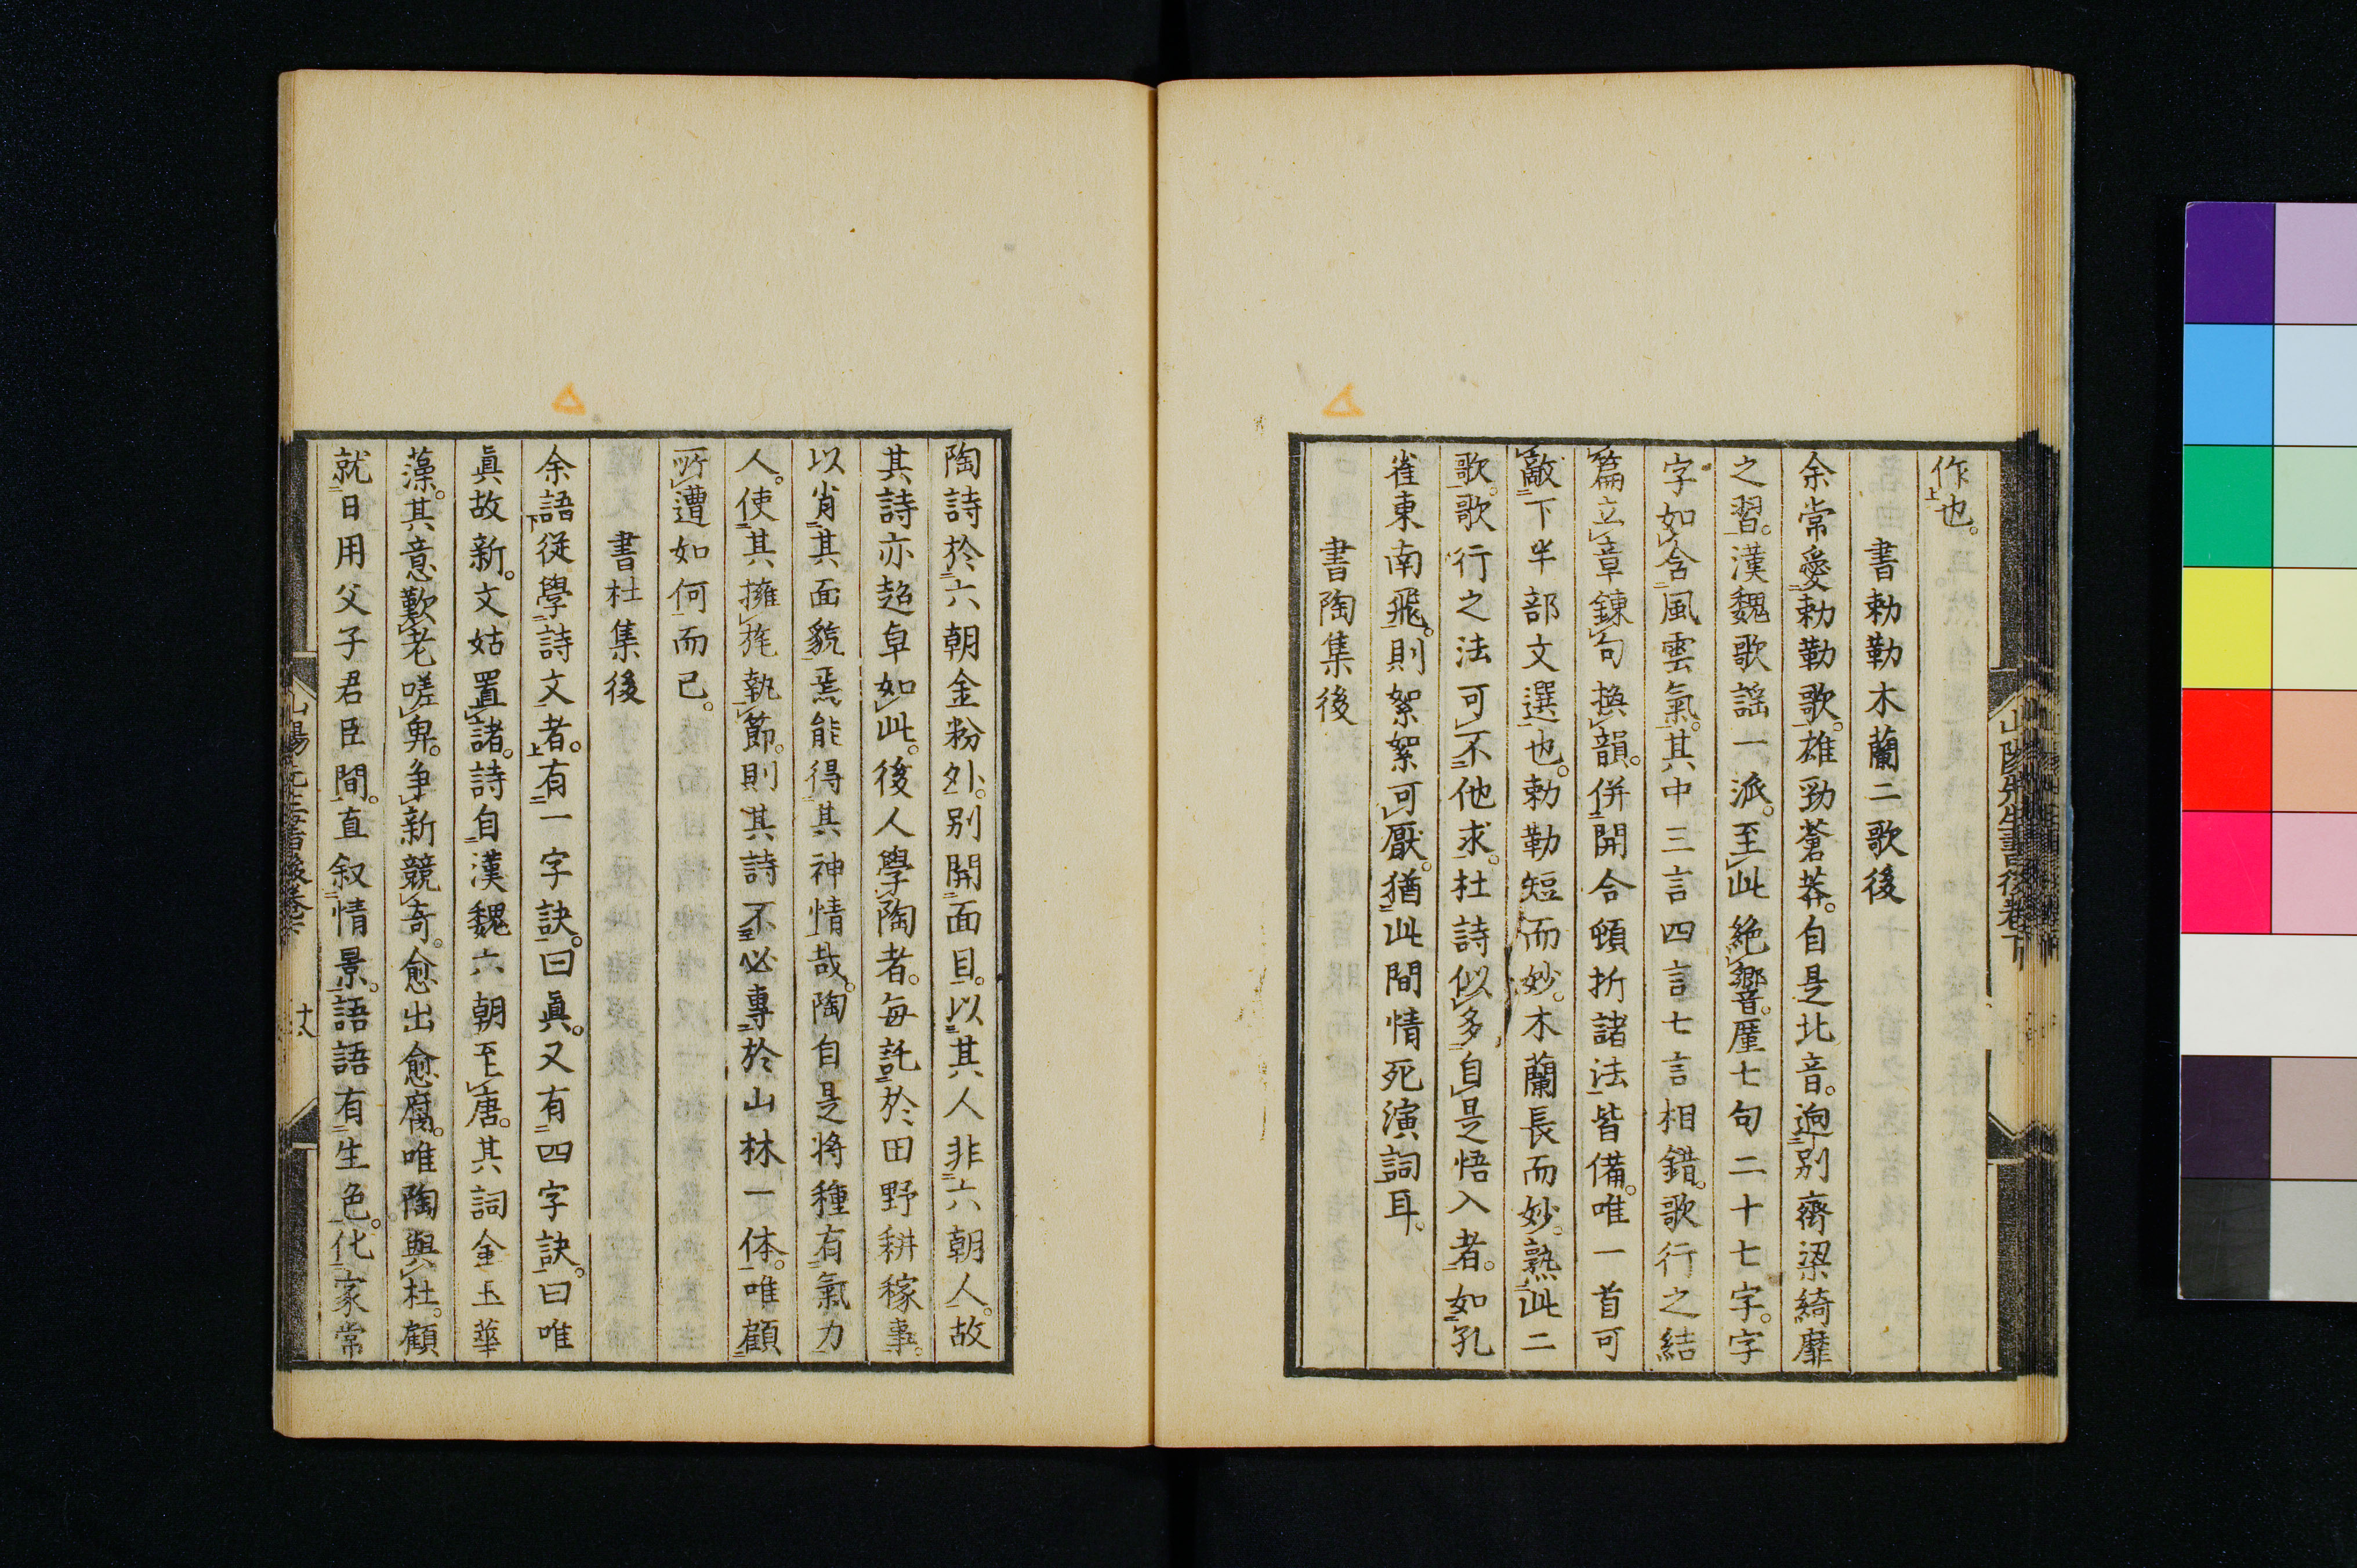 作也。
書勅勒木蘭二歌後
余常愛勅勒歌。雄勁蒼莽。自是北音。迥別齊梁綺靡
之習。漢魏歌謡一派。至此絶響。厪七句二十七字。字
字如含風雲氣。其中三言四言七言相錯。歌行之結
篇立章錬句換韻。併開合頓折諸法皆備。唯一首可
敵下半部文選也。勅勒短而妙。木蘭長而妙。熟此二
歌。歌行之法可不他求。杜詩似多自是悟入者。如孔
雀東南飛。則絮絮可厭。猶此間情死演詞耳。
書陶集後
陶詩於六朝金粉外。別開面目。以其人非六朝人。故
其詩亦超卓如此。後人學陶者。毎託於田野耕稼事。
以肖其面貌。焉能得其神情哉。陶自是将種有氣力
人。使其擁旄執節。則其詩不必專於山林一体。唯顧
所遭如何而已。
書杜集後
余語従學詩文者。有一字訣。曰眞。又有四字訣。曰唯
眞故新。文姑置諸。詩自漢魏六朝至唐。其詞金玉華
藻。其意歎老嗟卑。争新競奇。愈出愈腐。唯陶與杜。顧
就日用父子君臣間。直叙情景。語語有生色。化家常
山陽先生書後巻下